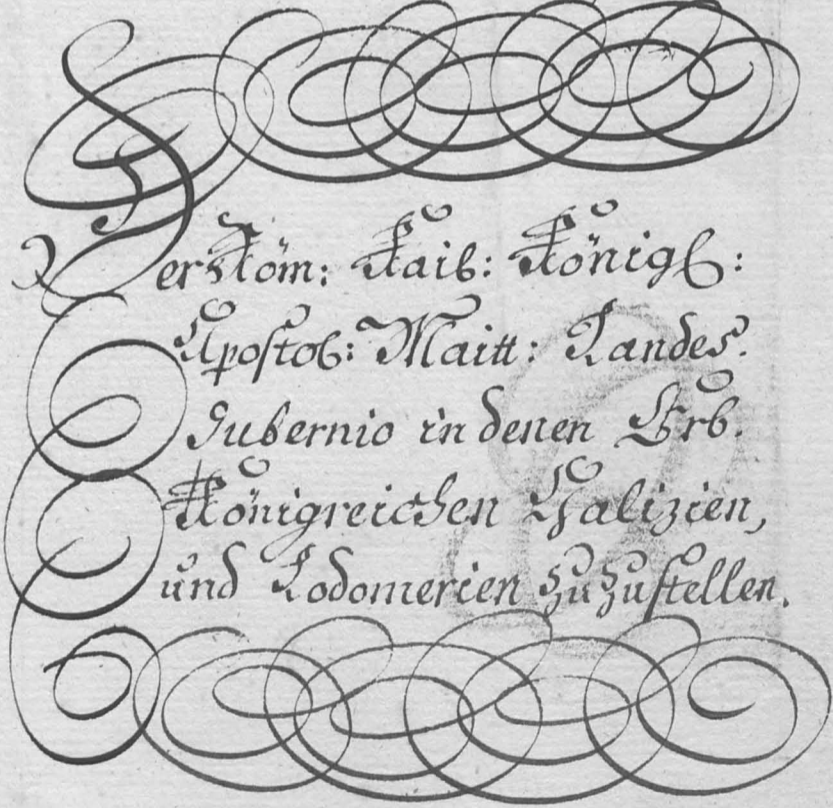 Der Röm: Kais: Königl:
Apostol: Maitt: Landes-
Gubernio in denen Erb-
Königreichen Galizien,
und Lodomerien zuzustellen.